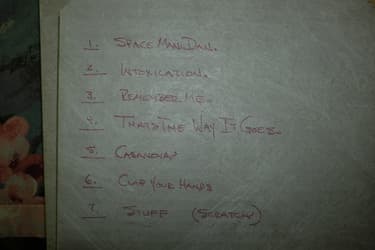 1. SPACE MAN DAN.
2. INTOXICATION.
3. REMEMBER ME.
4. THATS THE WAY IT GOES.
5. CASANOVA?
6. CLAP YOUR HANDS
7. STUFF (SCRATCHY)